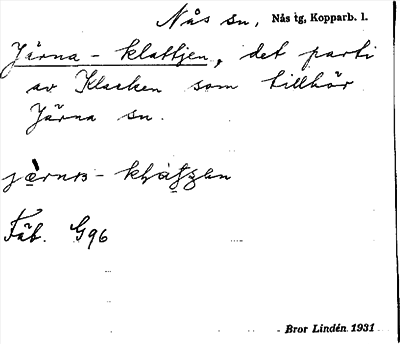 Nås sn, Nås tg, Kopparb. l.
Järna - klattjen, det parti
av Klacken som tillhör
Järna sn.
Fäb. G96
Bror Lindén 1931